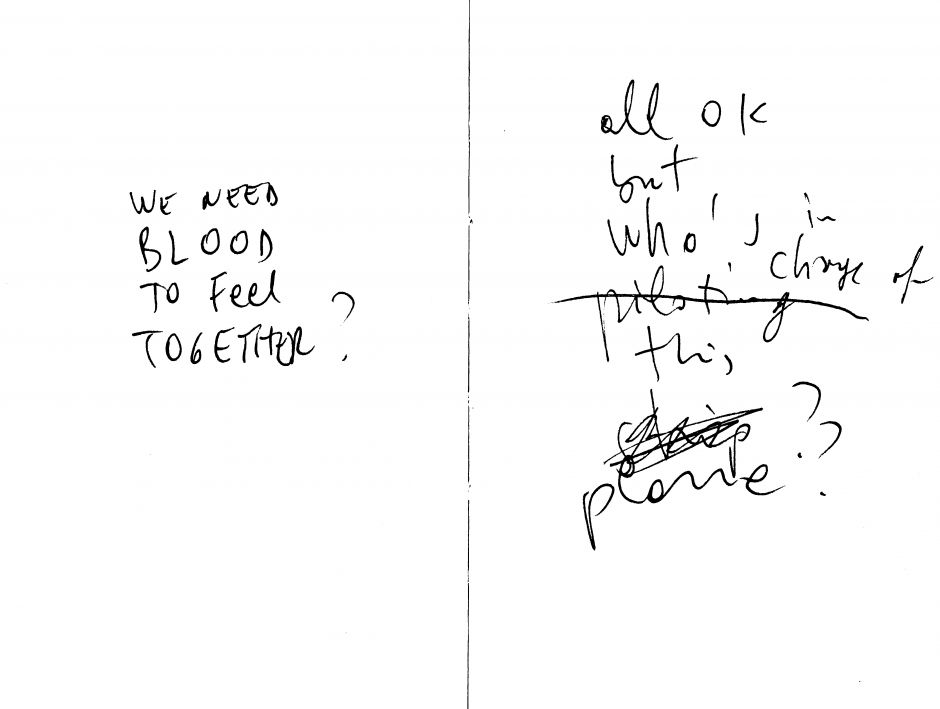 WE NEED
BLOOD
TO Feel
TOGETHER?
all OK
but
who's in charge of
piloting
this
ship?
plane?